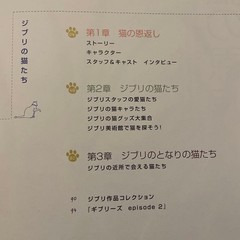 ジブリの猫たち
第1章　猫の恩返し
ストーリー
キャラクター
スタッフ&キャスト　インタビュー
第2章　ジブリの猫たち
ジブリスタッフの愛猫たち
ジブリの猫キャラたち
ジブリの猫グッズ大集合
ジブリ美術館で猫を探そう!
第3章　ジブリのとなりの猫たち
ジブリの近所で会える猫たち
ジブリ作品コレクション
「ギブリーズ　episode 2」